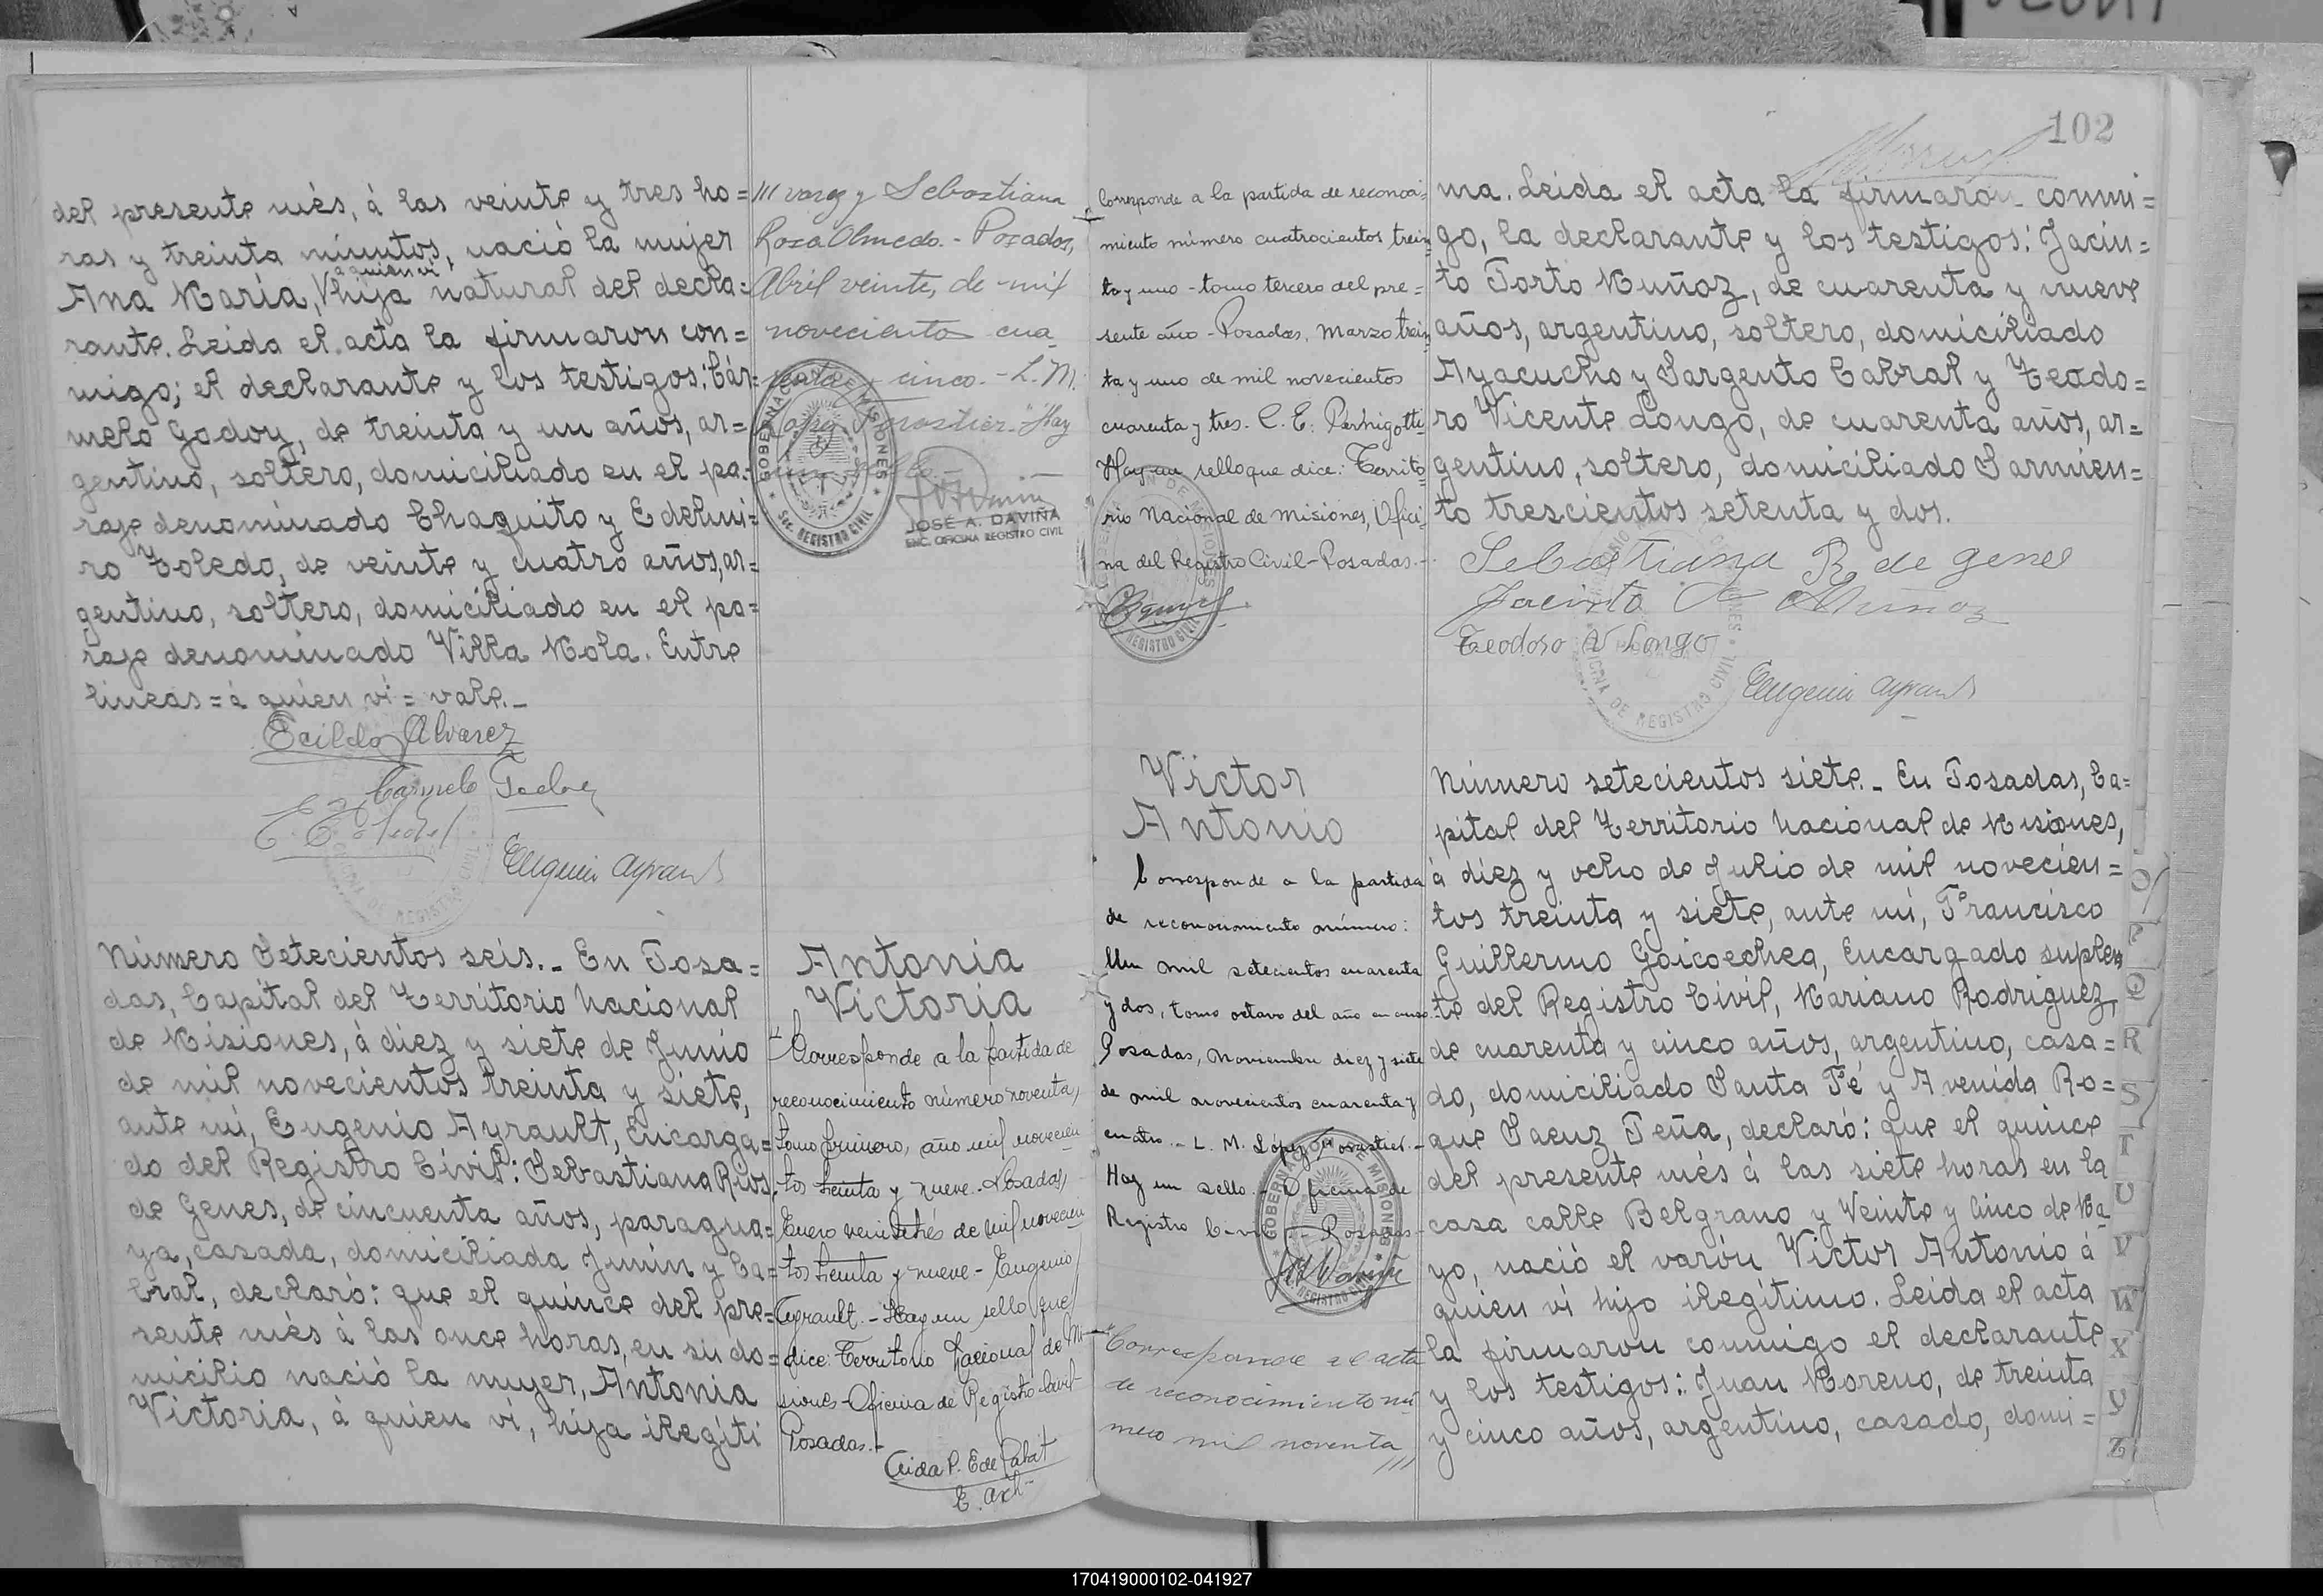 102
del presente més, á las veinte y tres ho=
ras y treinta minutos, nació la mujer
á quien ví
Ana María, hija natural del decla=
rante. Leida el acta la firmaron con=
migo; el declarante y los testigos: Cár=
melo Godoy, de treinta y un años, ar=
gentino, soltero, domiciliado en el pa=
raje denominado Chaquito y Edelmi=
ro Toledo, de veinte y cuatro años, ar=
gentino, soltero, domiciliado en el pa=
raje denominado Villa Mola. Entre
lineas = á quien ví = vale._
Ecildo Alvarez
Carmelo Godoy
Eugenio Ayrault
Número Setecientos seis._ En Posa=
das, Capital del Territorio Nacional
de Misiones, á diez y siete de Junio
de mil novecientos treinta y siete,
ante mí, Eugenio Ayrault, Encarga=
do del Registro Civil: Sebastiana Rios
de Genes, de cincuenta años, paragua=
ya, casada, domiciliada Junín y Ca=
bral, declaró: que el quince del pre=
sente més á las once horas, en su do=
micilio nació la mujer, Antonia
Victoria, á quien ví, hija ilegíti
/// varez y Sebastiana
Rosa Olmedo. - Posadas,
Abril veinte, de mil
novecientos cua
renta y cinco. - L. M.
López Forastier. Hay
un sello. -
GOBERNACION DE MISIONES
Sec. REGISTRO CIVIL
JOSÉ A. DAVIÑA
ENC. OFICINA REGISTRO CIVIL
Antonia
Victoria
"Corresponde a la partida de
reconocimiento número noventa,
tomo primero, año mil novecien
tos treinta y nueve. - Posadas,
Enero veintitrés de mil novecien
tos treinta y nueve - Eugenio
Ayrault. - Hay un sello que
dice: Territorio Nacional de Mi-
siones - Oficina de Registro Civil-
Posadas. -
Corresponde a la partida de reconoci=
miento número cuatrocientos trein=
ta y uno - tomo tercero del pre=
sente año - Posadas, Marzo trein
ta y uno de mil novecientos
cuarenta y tres. C. E. Perhigotti
Hay un sello que dice: Territo
rio Nacional de Misiones, Ofici=
na del Registro Civil - Posadas. -
REGISTRO CIVIL
Victor
Antonio
Corresponde a la partida
de reconocimiento número:
Un mil setecientos cuarenta
y dos, tomo octavo del año en curso.
Posadas, Noviembre diez y siete
de mil novecientos cuarenta y
cuatro. - L. M. López Forastier. -
Hay un sello. - Oficina de
Registro Civil - Posadas -
GOBERNACION DE MISIONES
REGISTRO CIVIL
"Corresponde al acta
de reconocimiento nú
mero mil noventa
///
ma. Leida el acta la firmaron conmi=
go, la declarante y los testigos: Jacin=
to Porto Muñoz, de cuarenta y nueve
años, argentino, soltero, domiciliado
Ayacucho y Sargento Cabral y Teodo=
ro Vicente Longo, de cuarenta años, ar=
gentino, soltero, domiciliado Sarmien=
to trescientos setenta y dos.
Sebastiana R. de genes
Jacinto P Muñoz
Teodoro V Longo
OFICINA DE REGISTRO CIVIL
Eugenio Ayrault
Número setecientos siete._ En Posadas, Ca=
pital del Territorio Nacional de Misiones,
á diez y ocho de Julio de mil novecien=
tos treinta y siete, ante mí, Francisco
Guillermo Goicoechea, Encargado suplen
te del Registro Civil, Mariano Rodriguez,
de cuarenta y cinco años, argentino, casa=
do, domiciliado Santa Fé y Avenida Ro=
que Saenz Peña, declaró: que el quince
del presente més á las siete horas en la
casa calle Belgrano y Veinte y Cinco de Ma
yo, nació el varón Victor Antonio á
quien ví hijo ilegítimo. Leida el acta
la firmaron conmigo el declarante
y los testigos: Juan Moreno, de treinta
y cinco años, argentino, casado, domi=
O
P
Q
R
S
T
U
V
W
X
Y
Z
170419000102-041927